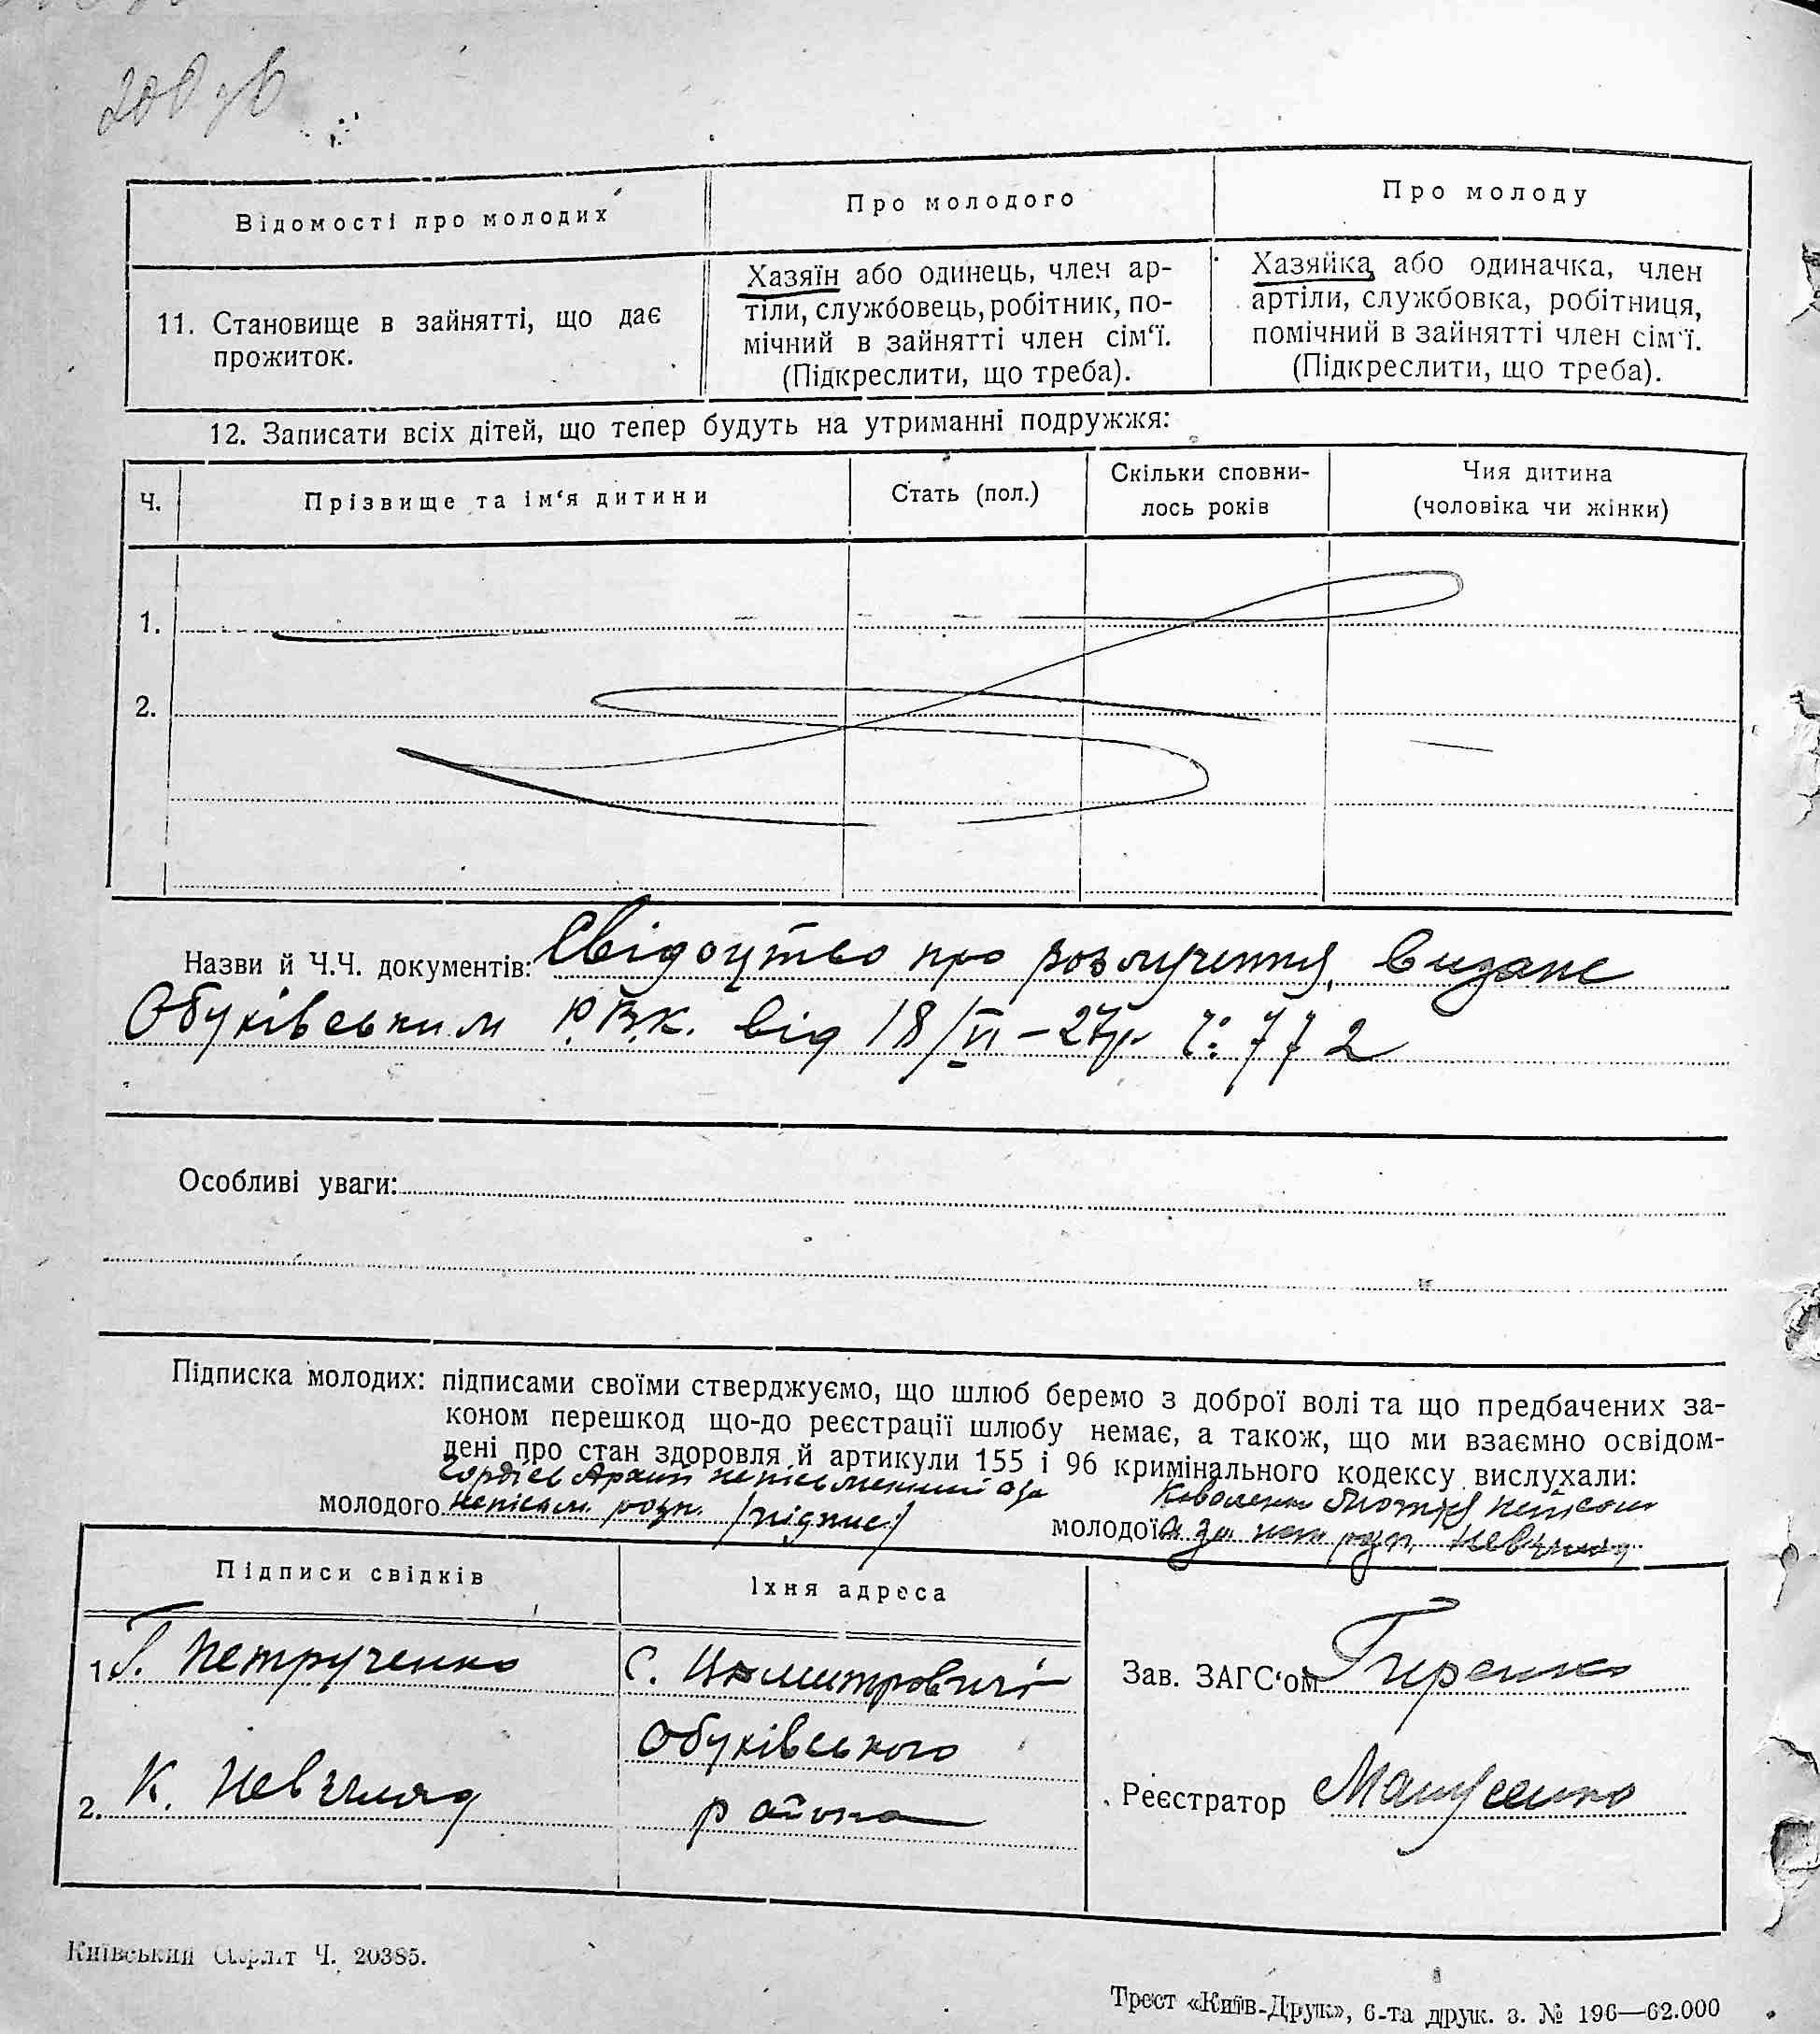 200 зв
Відомості про молодих
Про молодого
Про молоду
11. Становище в зайнятті, що дає
прожиток.
Хазяїн або одинець, член ар-
тіли, службовець, робітник, по-
мічний в зайнятті член сім‘ї.
(Підкреслити, що треба).
Хазяйка, або одиначка, член
артіли, службовка, робітниця,
помічний в зайнятті член сім‘ї.
(Підкреслити, що треба).
12. Записати всіх дітей, що тепер будуть на утриманні подружжя:
Ч.
Прізвище та ім‘я дитини
Стать (пол.)
Скільки сповни-
лось років
Чия дитина
(чоловіка чи жінки)
1.
2.
Назви й Ч.Ч. документів: Свідоцтво про розлучення, видане
Обухівським Р.В.К. від 18/VI – 27р. Ч: 772
Особливі уваги:
Підписка молодих: підписами своїми стверджуємо, що шлюб беремо з доброї волі та що предбачених за-
коном перешкод що-до реєстрації шлюбу немає, а також, що ми взаємно освідом-
лені про стан здоровля й артикули 155 і 96 кримінального кодексу вислухали:
Гордієв Архип неписьменний а за
молодого неписьм. розп. /підпис/
Коваленко
молодої а за розп. Невзгляд
Підписи свідків
Їхня адреса
1. Петрученко
с. Германівка
Обухівського
2. К. Невзгляд
района
Зав. ЗАГС‘ом
Реєстратор
Київський Окрліт Ч. 20385.
Трест «Київ-Друк», 6-та друк. з. № 196—62.000